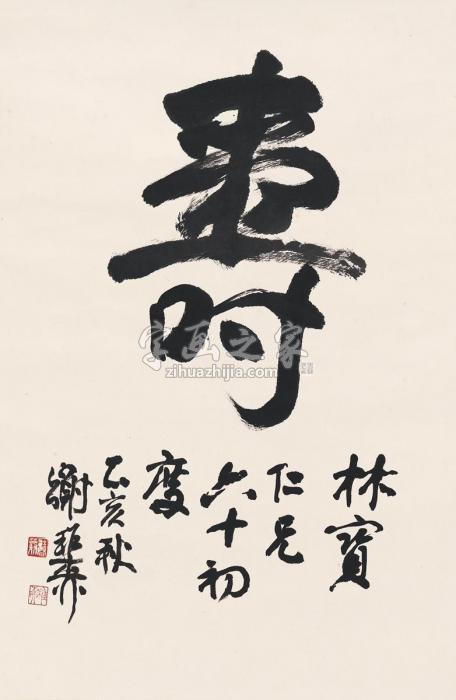 壽
林寶
仁兄
六十初
度
乙亥秋
謝
字画之家
zihuazhijia.com